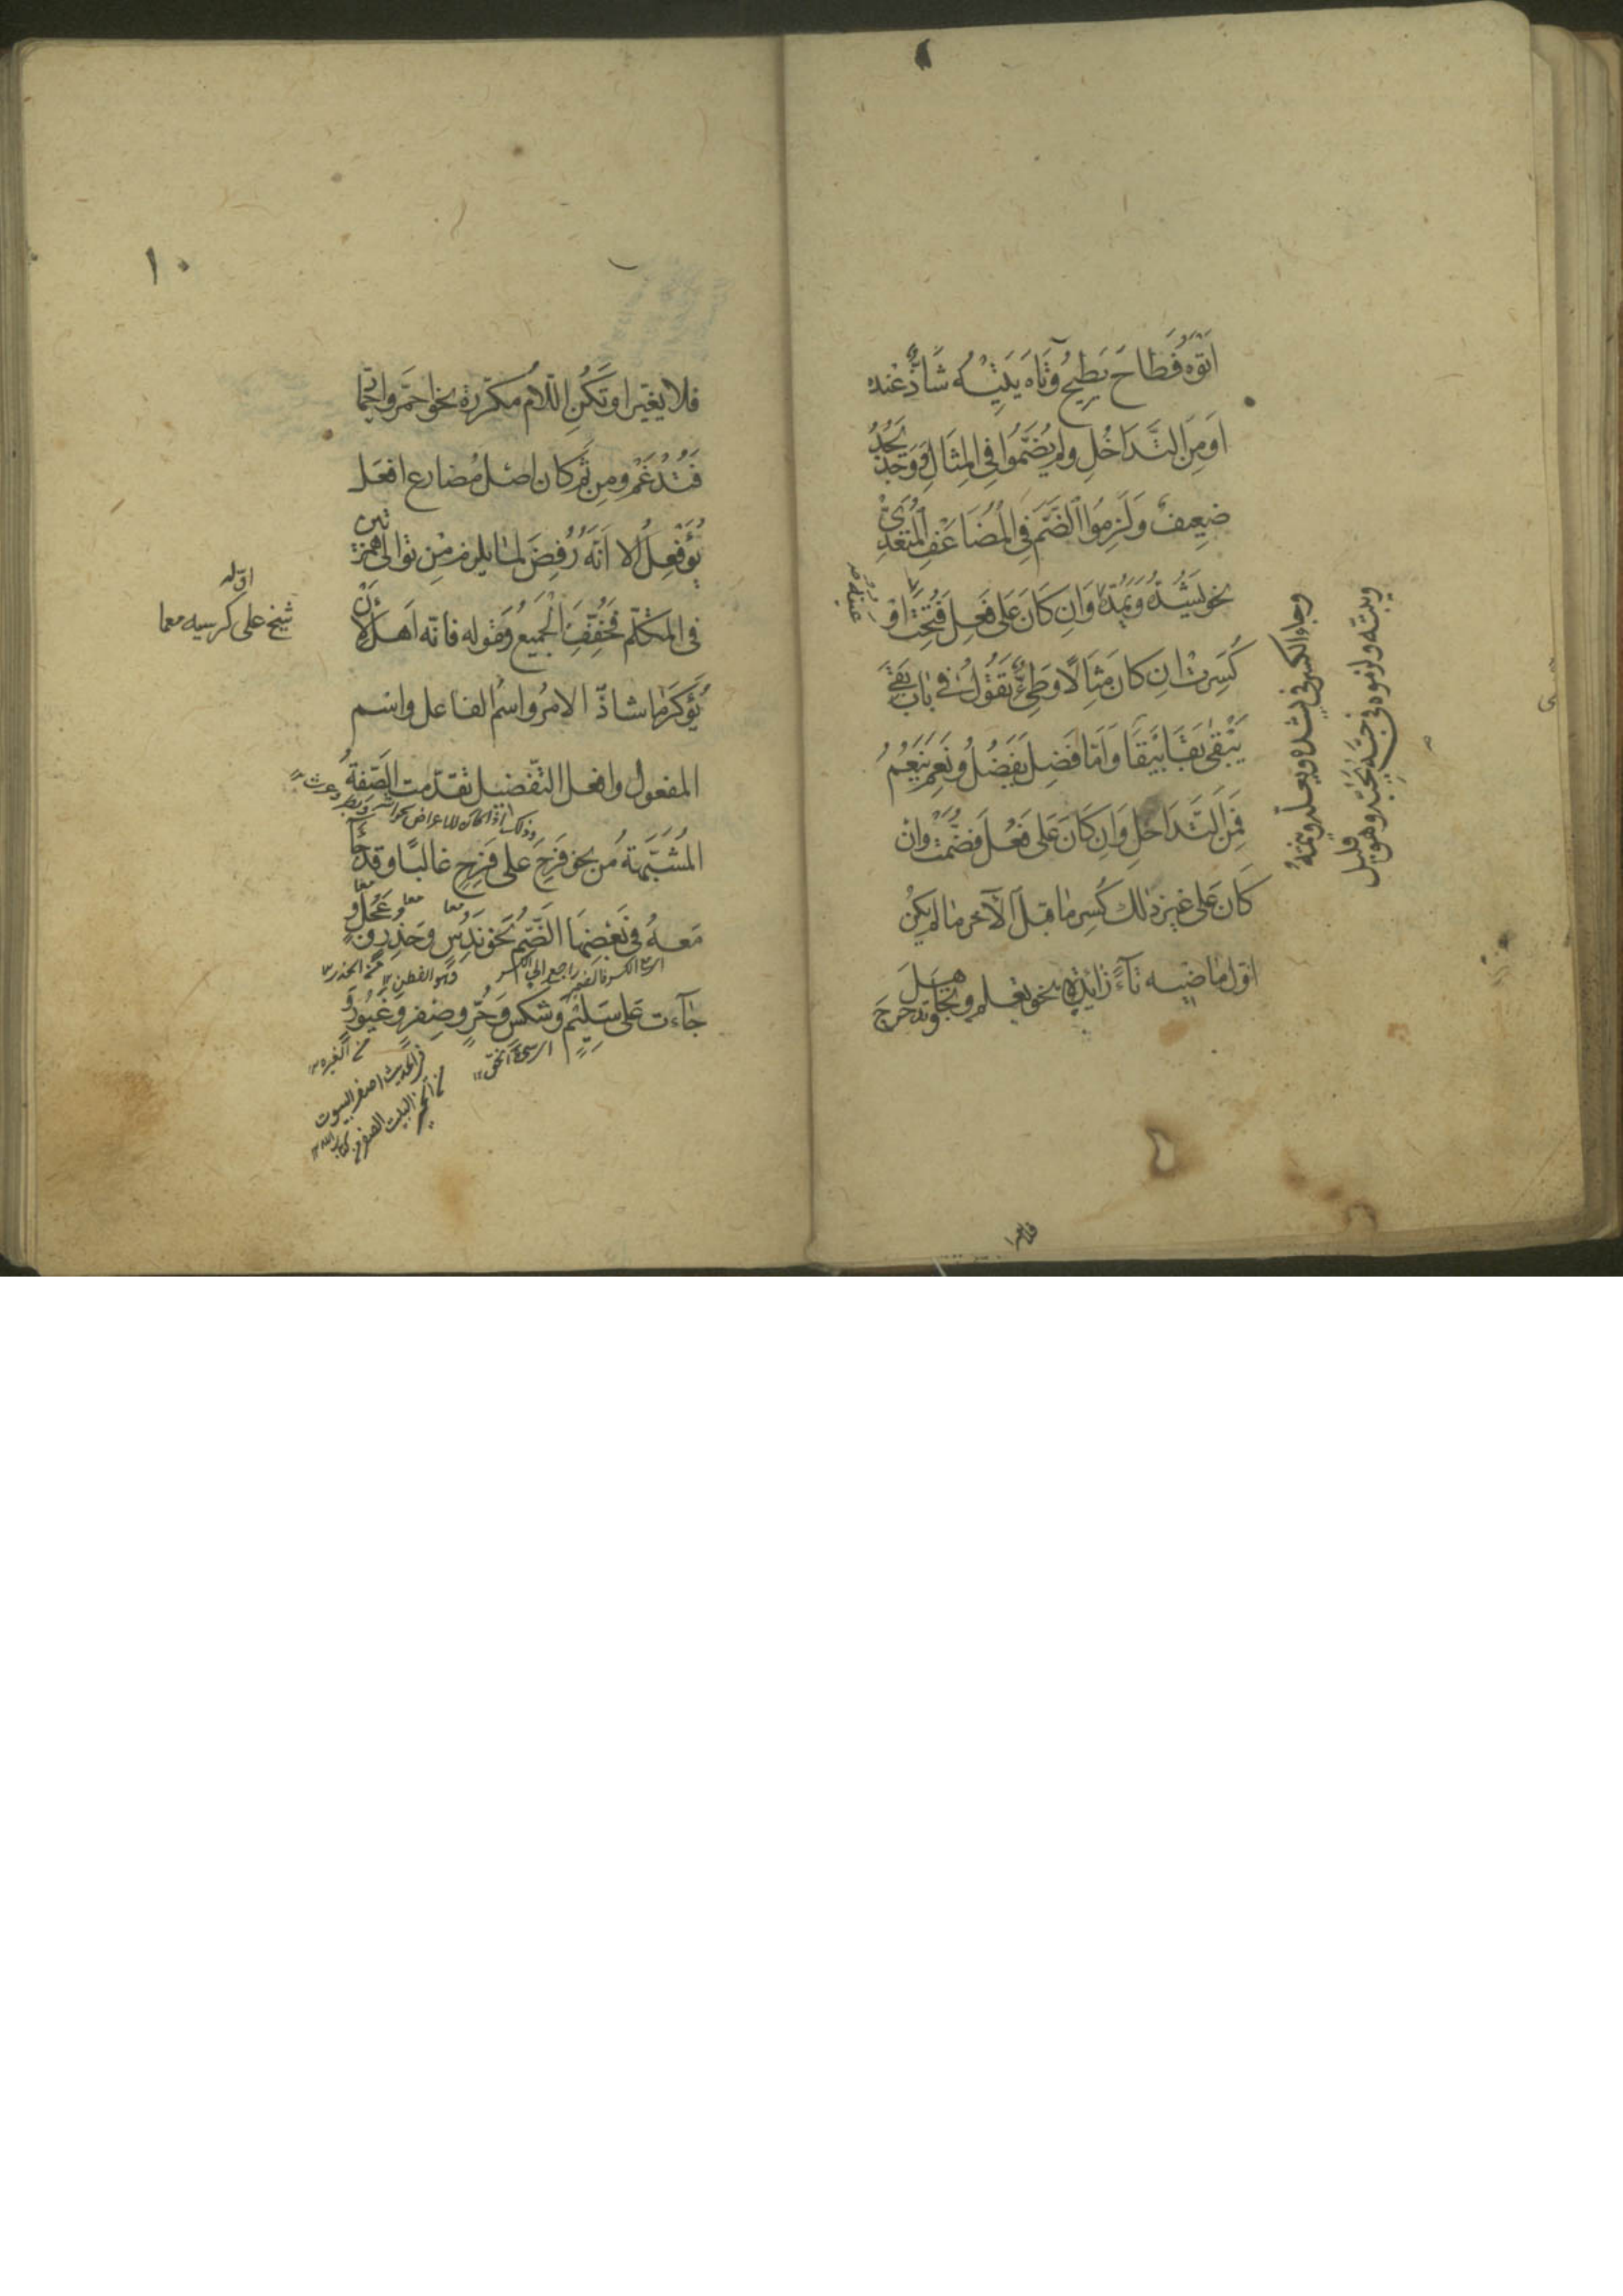 اتوه فطاح يطيح وتاه يتيه شاذ عنده
او من التداخل ولم يضموا في المثال ووجد يجد
ضعيف ولزموا الضم في المضاعف المتعدى
نحو يشده ويمده وان كان على فعل فتحت او
كسرت ان كان مثالا وطيئ تقول في باب بقي
يبقى بقا يبقا واما فضل يفضل ونعم ينعم
فمن التداخل وان كان على فعل ضمت وان
كان على غير ذلك كسر ما قبل الآخر ما لم يكن
اول ماضيه تآء زايدة نحو تعلم وتجاهل وتدحرج
وجاء الكسر في يشده ويعله وينمه
ويبته ولزموه في حبه يحبه وهو قليل
١٠
فلا يغير او تكن اللام مكررة نحو احمر واحمار
فتدغم ومن ثم كان اصل مضارع افعل
يؤفعل الا انه رفض لما يلزم من توالى همزتين
في المتكلم فخفف الجميع وقوله فانه اهل لان
يؤكرما شاذ الامر واسم الفاعل واسم
المفعول وافعل التفضيل تقدمت الصفة
المشبهة من نحو فرح على فرح غالبا وقد جآء
معه في بعضها الضم نحو ندس وحذر وعجل
جآءت على سليم وشكس وحر وصفر وغيور
اوله
شيخ على كرسيه معما
معا
معا
معا
راجع الى الكسر
وهو الفطن
من الحذر
من الغيرة